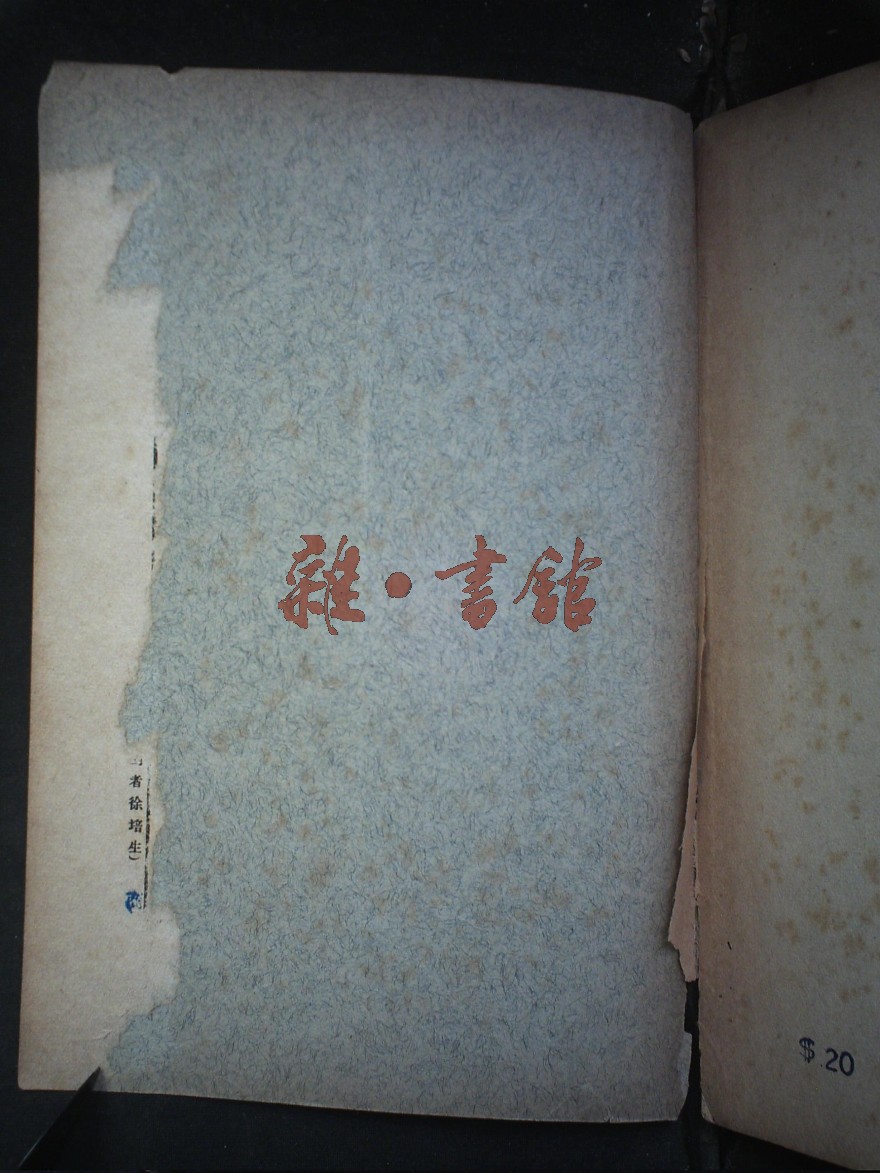 雜·書館
者徐培生)
$.20